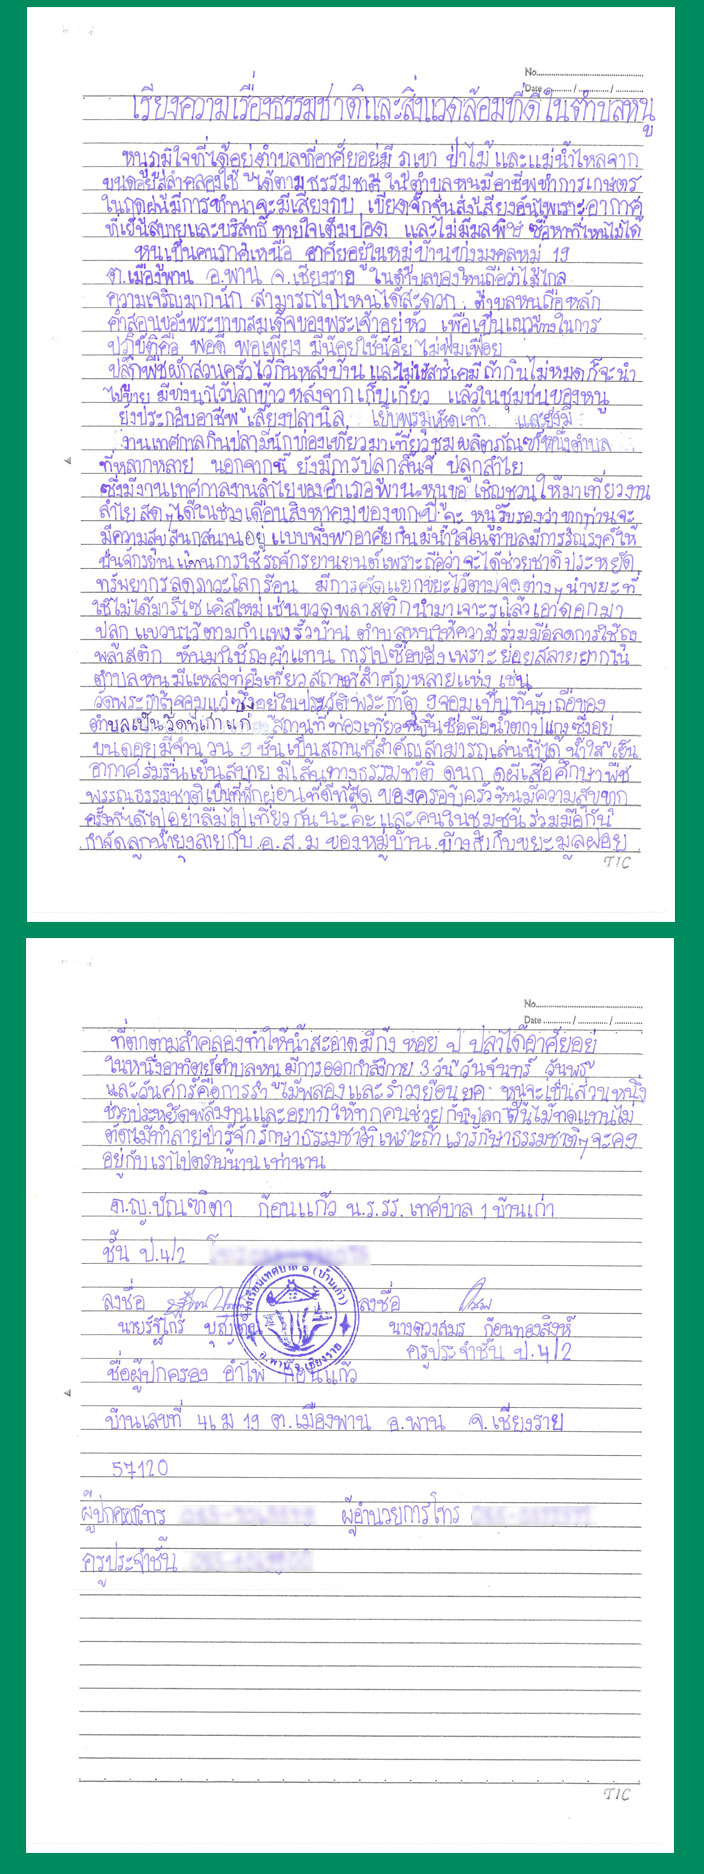 No.
Date / /
เรียงความเรื่องธรรมชาติและสิ่งแวดล้อมที่ดีในตำบลหนู
หนูภูมิใจที่ได้อยู่ตำบลที่อาศัยอยู่มี ภูเขา ป่าไม้ และแม่น้ำไหลจาก
บนดอยสู่ลำคลองใช้ได้ตามธรรมชาติ ในตำบลหนูมีอาชีพทำการเกษตร
ในฤดูฝนมีการทำนาจะมีเสียงกบ เขียด จักจั่นส่งเสียง อากาศ
ที่เย็นสบายและบริสิทธิ์ หายใจเต็มปอด และไม่มีมลพิษ ซื้อหาที่ไหนไม่ได้
หนูเป็นคนภาคเหนือ อาศัยอยู่ในหมู่บ้านข่วงมงคลหมู่ 19
ต.เมืองพาน อ.พาน จ.เชียงราย ในตำบลของหนูถือว่าไม่ไกล
ความเจริญมากนัก สามารถไปไหนได้สะดวก ตำบลหนูถือหลัก
คำสอนของพระบาทสมเด็จของพระเจ้าอยู่หัว เพื่อเป็นแนวทางในการ
ปฏิบัติคือ พอดี พอเพียง มีน้อยใช้น้อย ไม่ฟุ่มเฟือย
ปลูกพืชผักสวนครัวไว้กินหลังบ้าน และไม่ใช้สารเคมี ถ้ากินไม่หมดก็จะนำ
ไปขาย มีทุ่งนาไว้ปลูกข้าว หลังจากเก็บเกี่ยว แล้วในชุมชนของหนู
ยังประกอบอาชีพ เลี้ยงปลานิล, เย็บพรมเช็ดเท้า และยังมี
งานเทศกาลกินปลามีนักท่องเที่ยวมาเที่ยวชมผลิตภัณฑ์หนึ่งตำบล
ที่หลากหลาย นอกจากนี้ ยังมีการปลูกลิ้นจี่ ปลูกลำไย
ซึ่งมีงานเทศกาลงานลำไยของอำเภอพาน หนูขอเชิญชวนให้มาเที่ยวงาน
ลำไย สดๆได้ในช่วงเดือนสิงหาคมของทุกปี ค่ะ หนูรับรองว่าทุกท่านจะ
มีความสุขสนุกสนาน อยู่ แบบพึ่งพาอาศัยกันมีน้ำใจในตำบลมีการรณรงค์ให้
ปั่นจักรยาน แทนการใช้รถจักรยานยนต์เพราะถือว่าจะได้ช่วยชาติประหยัด
ทรัพยากร ลดภาวะโลกร้อน มีการคัดแยกขยะไว้ตามจุดต่างๆ นำขยะที่
ใช้ไม่ได้มารีไซเคิลใหม่ เช่นขวดพลาสติกนำมาเจาะรูแล้วเอาดอกมา
ปลูก แขวนไว้ตามกำแพงรั้วบ้าน ตำบลหนูให้ความร่วมมือลดการใช้ถุง
พลาสติก หันมาใช้ถุงผ้าแทน การไปซื้อของ เพราะย่อยสลายยากใน
ตำบลหนูมีแหล่งท่องเที่ยว สถานที่สำคัญหลายแห่ง เช่น
วัดพระธาตุจอมแว่ซึ่งอยู่ในประวัติพระธาตุ 9 จอมเป็นที่นับถือของ
ตำบลเป็นวัดที่เก่าแก่ สถานที่ท่องเที่ยวขึ้นชื่อคือน้ำตกปูแกงซึ่งอยู่
บนดอยมีจำนวน 9 ชั้นเป็นสถานที่สำคัญสามารถเล่นน้ำได้ น้ำใส เย็น
อากาศร่มรื่นเย็นสบาย มีเส้นทางธรรมชาติ ดูนก ดูผีเสื้อศึกษาพืช
พรรณธรรมชาติเป็นที่พักผ่อนที่ดีที่สุด ของครอบครัวหนูมีความสุขทุก
ครั้งที่ได้ไปอย่าลืมไปเที่ยวกันนะคะ และคนในชุมชนร่วมมือกัน
กำจัดลูกน้ำยุงลายกับ อ.ส.ม ของหมู่บ้าน เก็บขยะมูลฝอย
TIC
No.
Date / /
ที่ตกตามลำคลองทำให้น้ำสะอาดมีกุ้ง หอย ปู ปลาได้อาศัยอยู่
ในหนึ่งอาทิตย์ตำบลหนู มีการออกกำลังกาย 3 วัน วันจันทร์ วันพุธ
และวันศุกร์คือการรำไม้พลองและรำวงย้อนยุค หนูจะเป็นส่วนหนึ่ง
ช่วยประหยัดพลังงานและอยากให้ทุกคนช่วยกันปลูกต้นไม้ทดแทนไม่
ตัดไม้ทำลายป่ารู้จักรักษาธรรมชาติ เพราะถ้า เรารักษาธรรมชาติๆจะคง
อยู่กับเราไปตราบนานเท่านาน
ด.ญ.บัณฑิตา ก้อนแก้ว น.ร.รร. เทศบาล 1 บ้านเก่า
ชั้น ป.4/2
ลงชื่อ ลงชื่อ
โรงเรียนเทศบาล ๑ (บ้านเก่า)
อ.พาน จ.เชียงราย
นายรัฐไกร นางดวงสมร ก้อนทองสิงห์
ครูประจำชั้น ป.4/2
ชื่อผู้ปกครอง อำไพ ก้อนแก้ว
บ้านเลขที่ ม 19 ต.เมืองพาน อ.พาน จ.เชียงราย
57120
ผู้ปกครองโทร ผู้อำนวยการโทร
ครูประจำชั้น
TIC